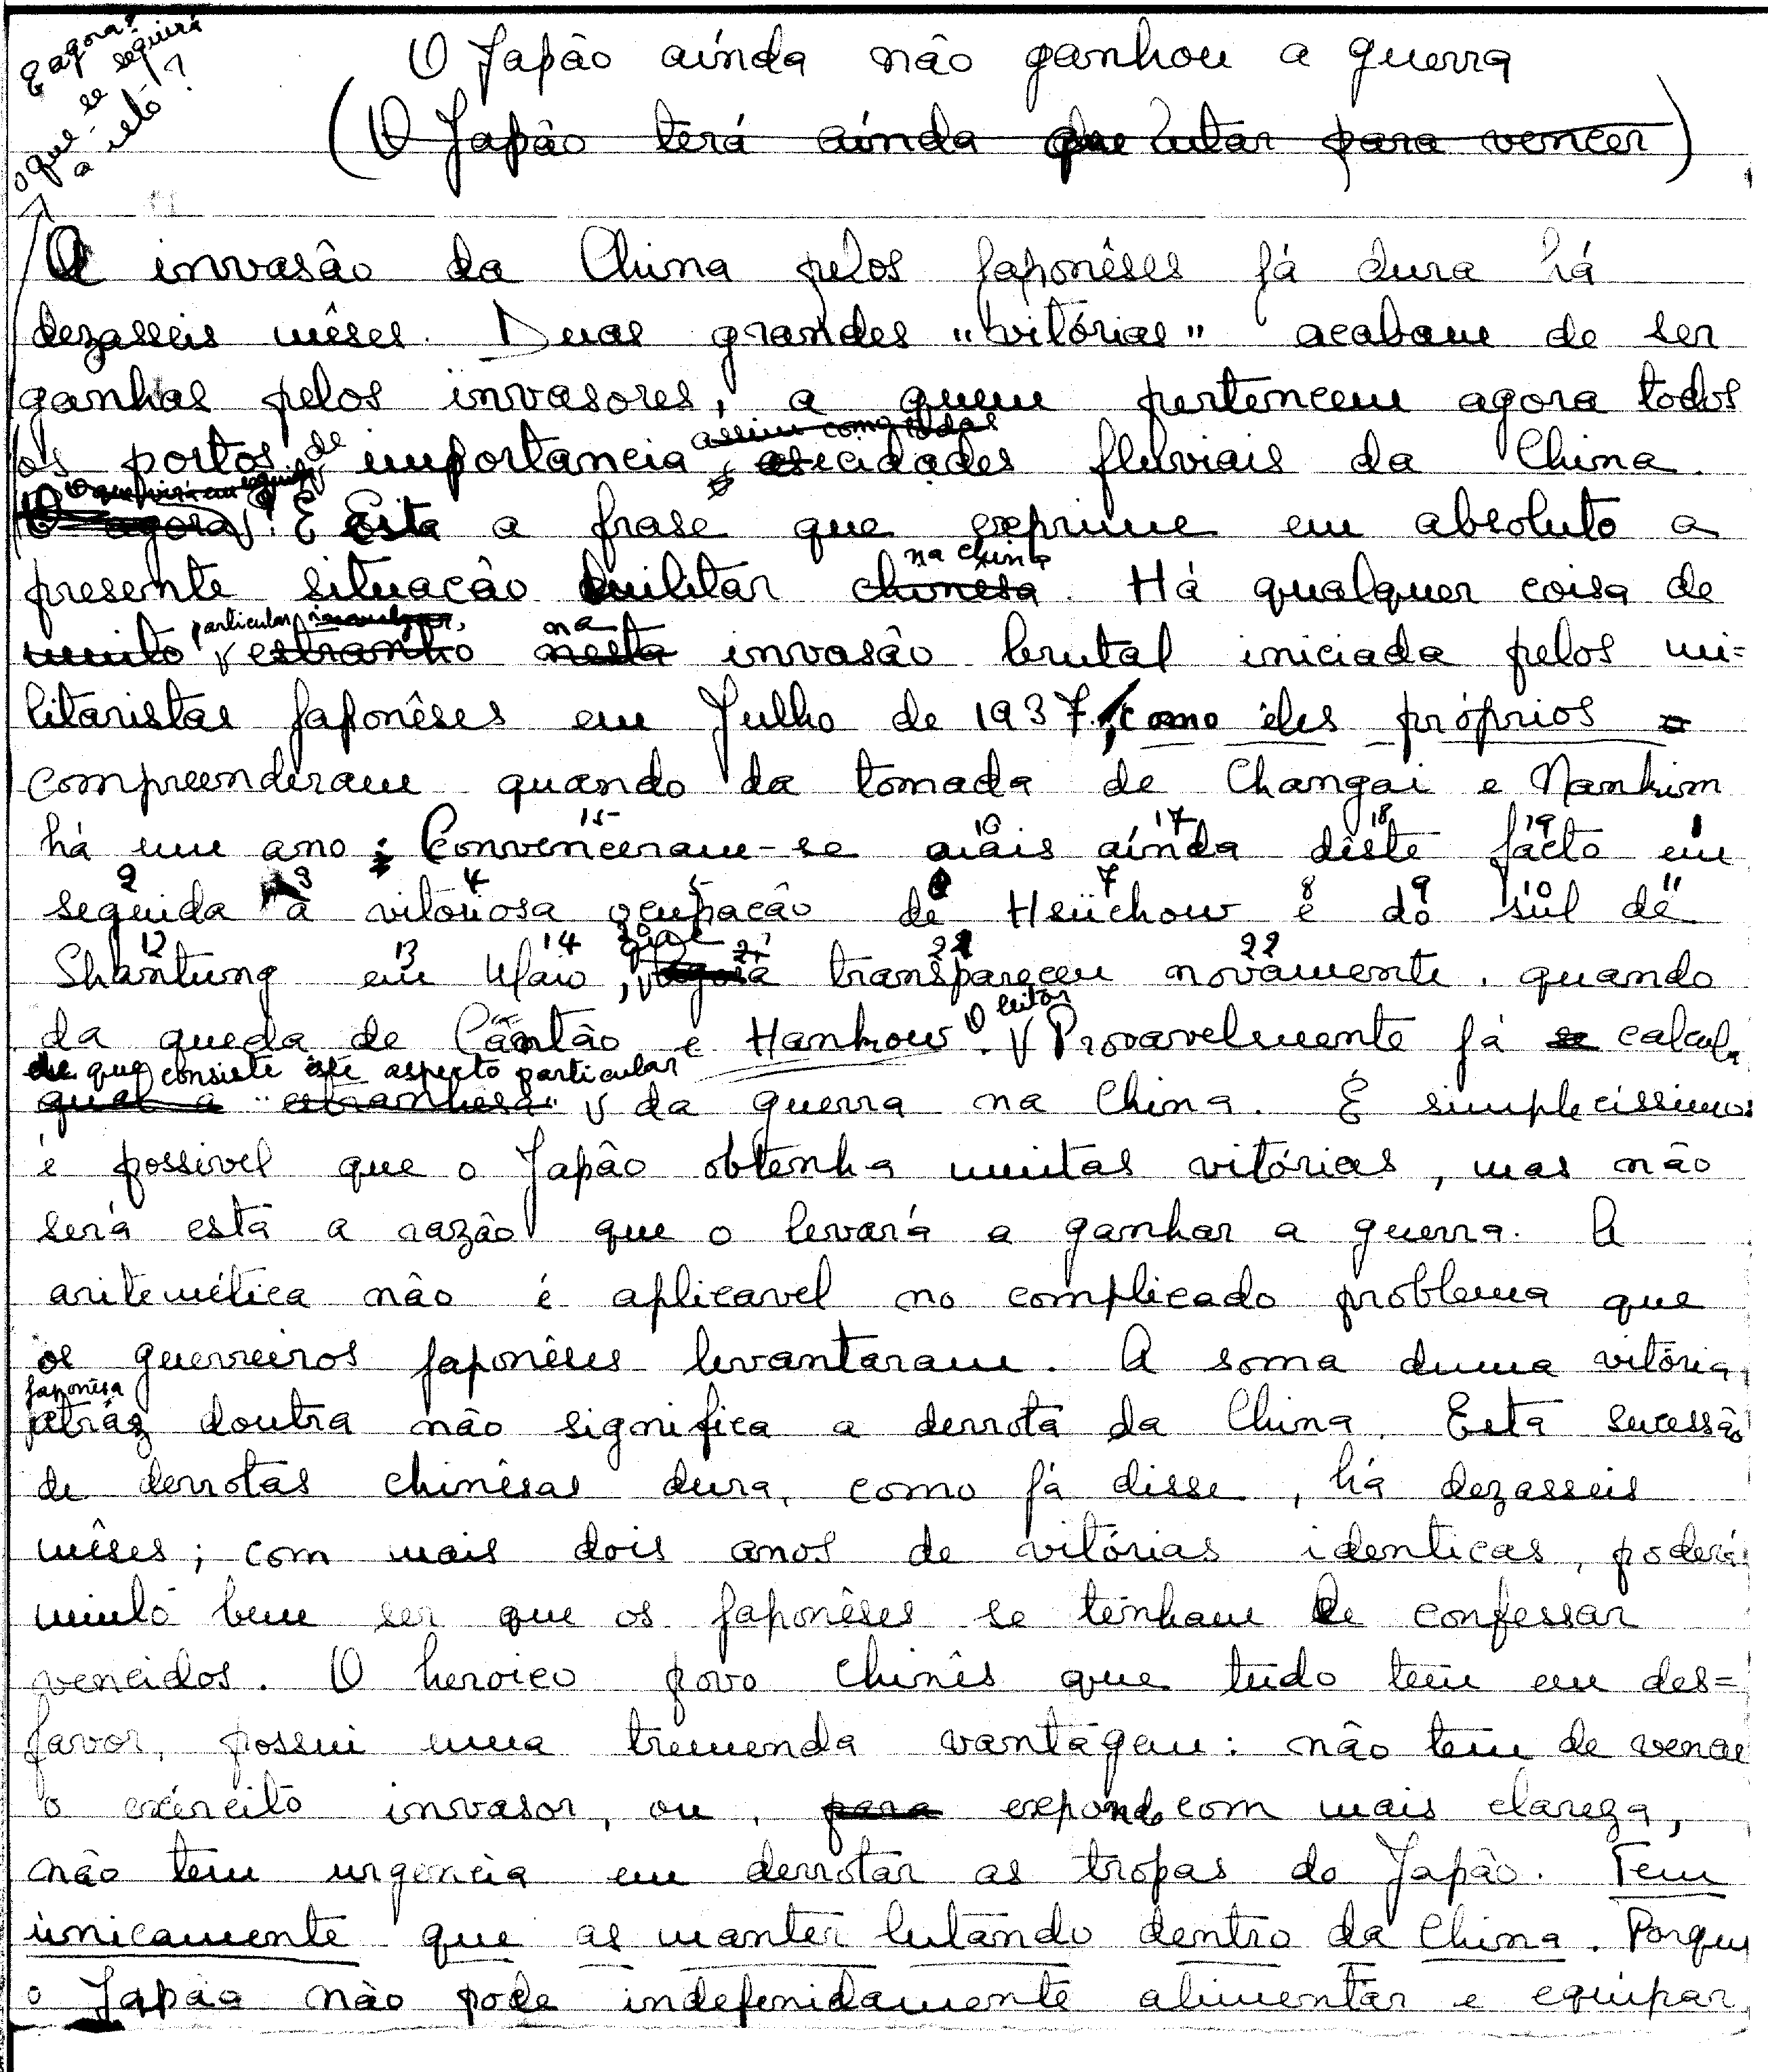 E agora?
o que se seguirá
a isto?
O Japão ainda não ganhou a guerra
(O Japão terá ainda que lutar para vencer)
A invasão da China pelos japonêses já dura há
dezasseis mêses. Duas grandes "vitórias" acabam de ser
ganhas pelos invasores, a quem pertencem agora todos
assim como todas
os portos de importancia e cidades fluviais da China.
O que virá em seguida
O agora? É esta a frase que exprime em absoluto a
na China
presente situação militar chinesa. Há qualquer coisa de
particular, na
muito estranho nesta invasão brutal iniciada pelos mi=
litaristas japonêses em Julho de 1937, como êles próprios o
compreenderam quando da tomada de Changai e Nankim
há um ano; 15 16 17 18 19 1
Convenceram-se mais ainda dêste facto em
2 3 4 5 6 7 8 9 10 11
seguida à vitoriosa ocupação de Hsüchow e do sul de
12 13 14 20 que 21 21 22
Shantung em Maio, agora transpareceu novamente, quando
O leitor
da queda de Cantão e Hankow. Provavelmente já se calcula
em que consiste êste aspecto particular
qual a "estranhesa" da guerra na China. É simplecissimo:
é possivel que o Japão obtenha muitas vitórias, mas não
será esta a razão que o levará a ganhar a guerra. A
aritemética não é aplicavel no complicado problema que
os guerreiros japonêses levantaram. A soma duma vitória
japonêsa
atráz doutra não significa a derrota da China. Esta sucessão
de derrotas chinêsas dura, como já disse, há dezasseis
mêses; com mais dois anos de vitórias identicas, poderá
muito bem ser que os japonêses se tenham de confessar
vencidos. O heroico povo chinês que tudo tem em des=
favor, possui uma tremenda vantagem: não tem de vencer
o exército invasor, ou, para expondo com mais clareza,
não tem urgencia em derrotar as tropas do Japão. Tem
ùnicamente que as manter lutando dentro da China. Porque
o Japão não pode indefenidamente alimentar e equipar